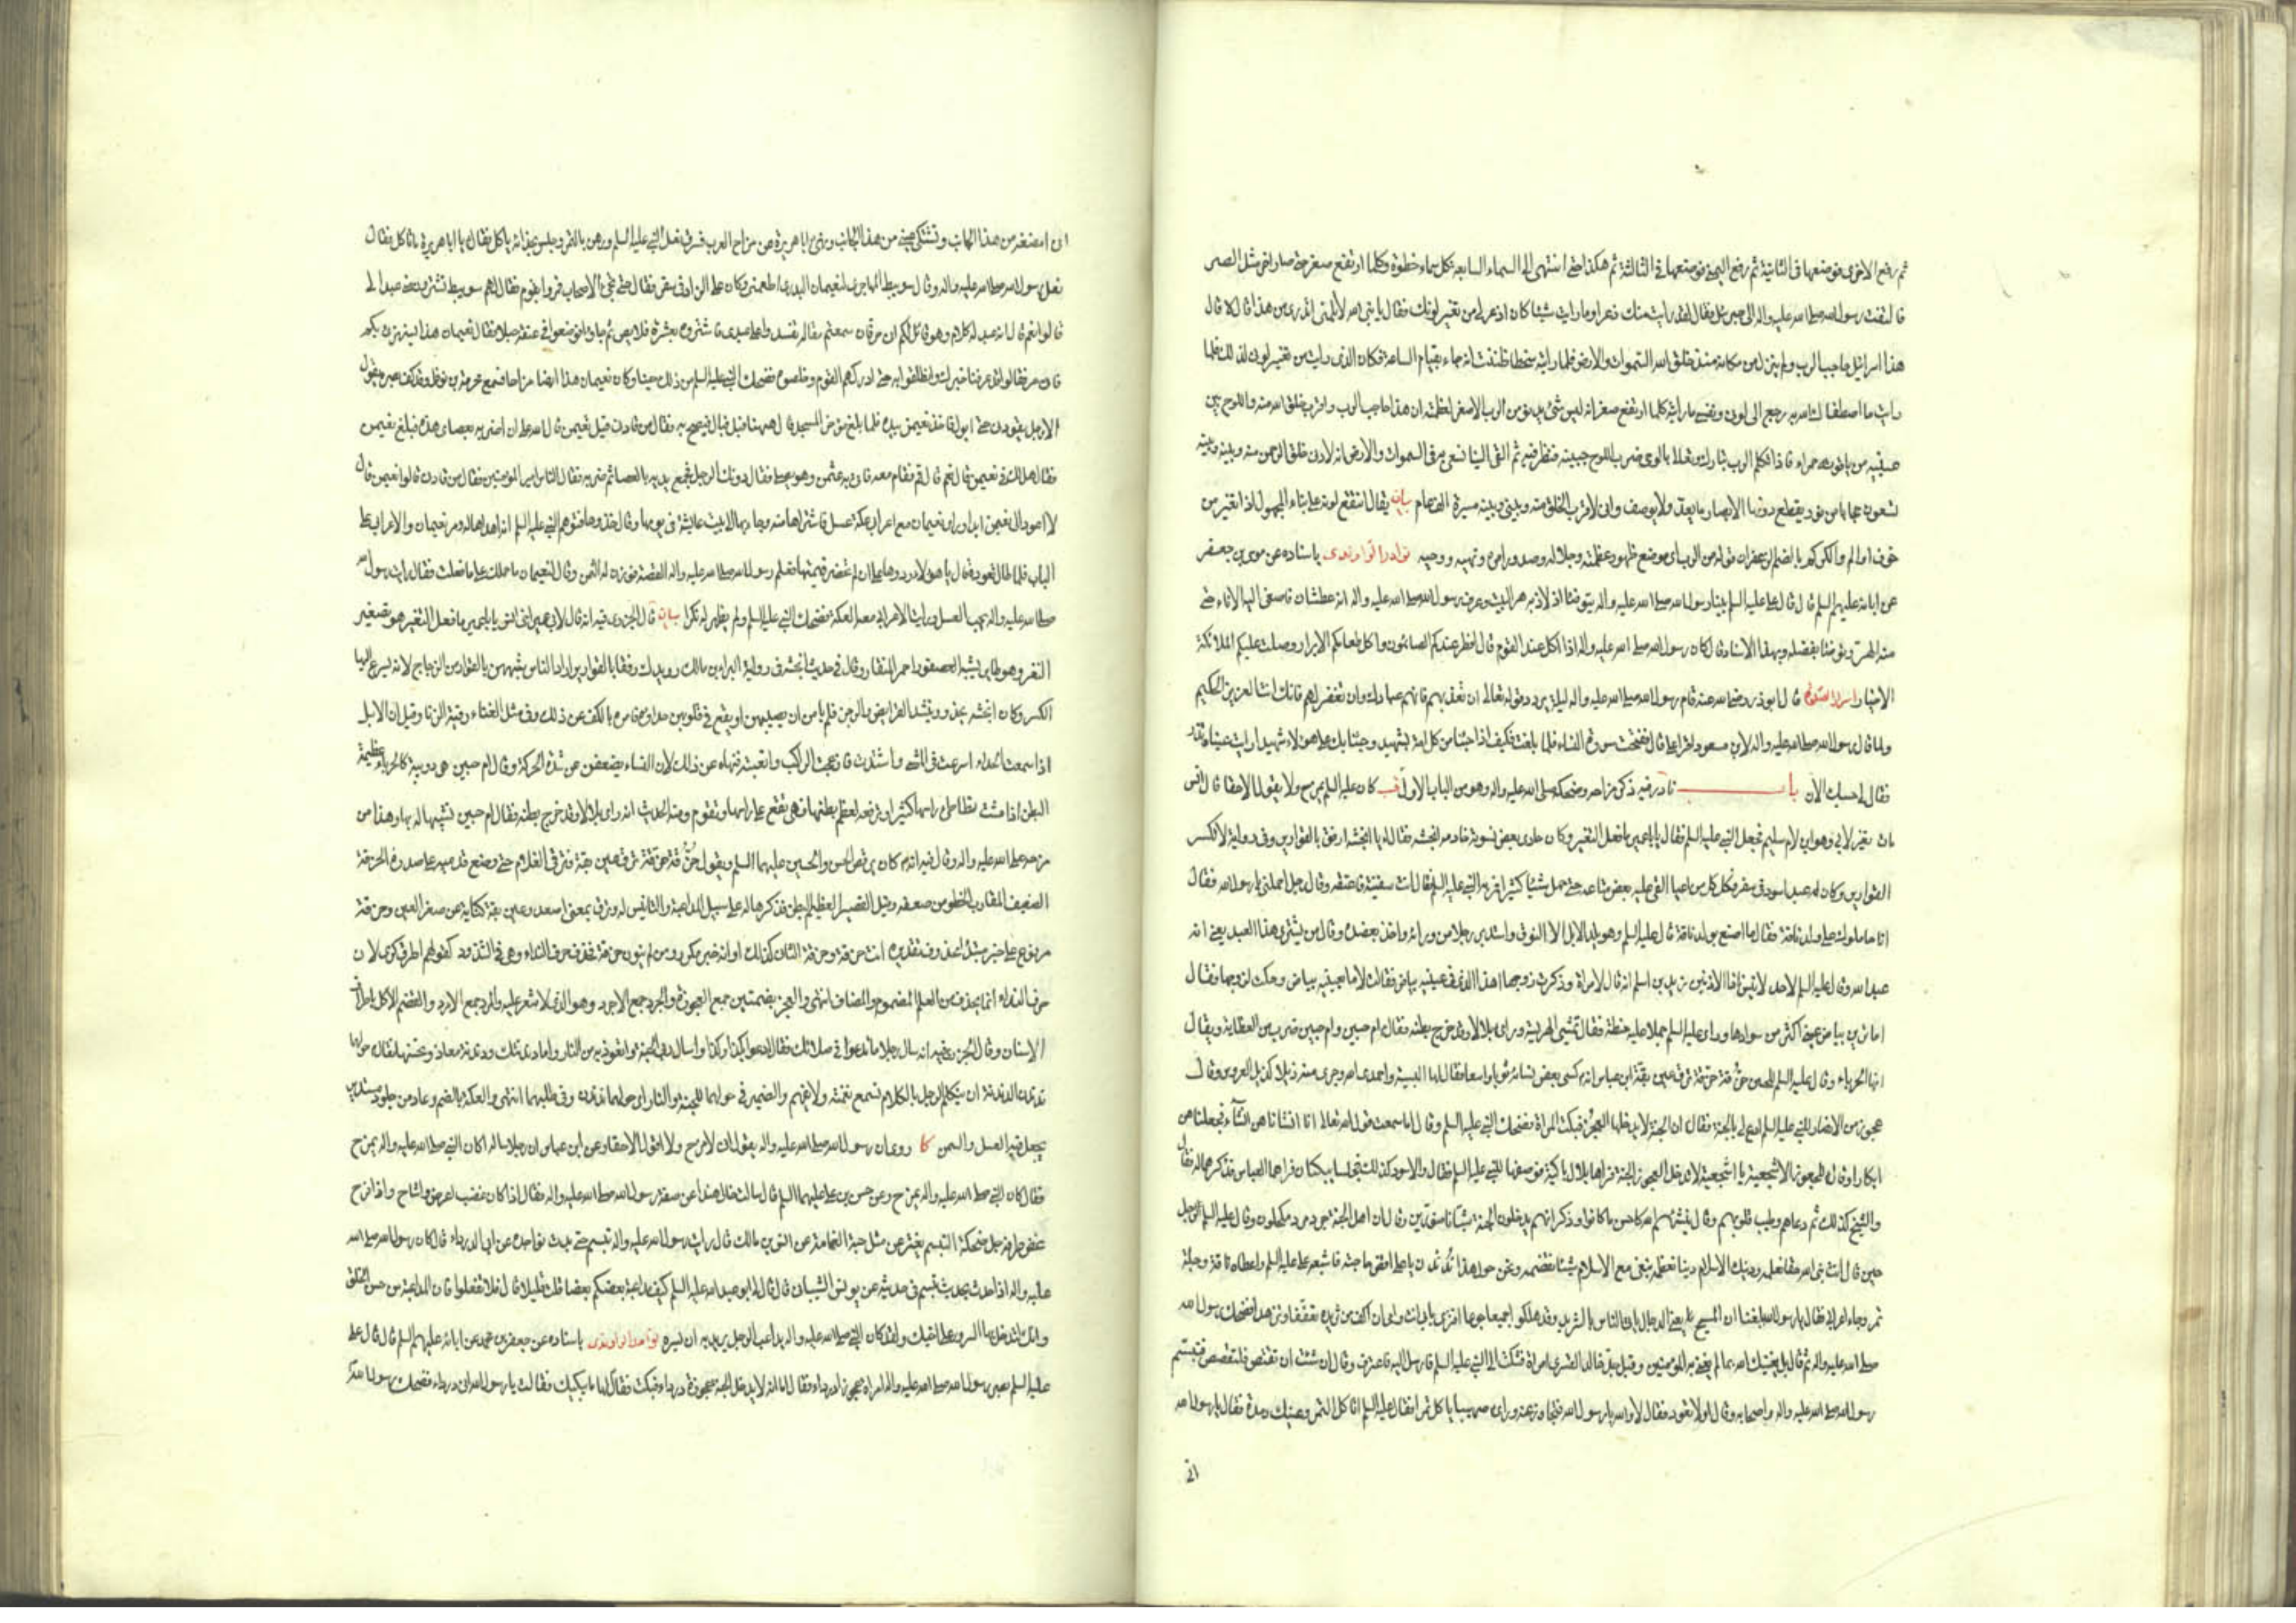 ثم رفع الاخرى فوضعها فى الثانية ثم رفع اليمنى فوضعها فى الثالثة ثم هكذا حتى انتهى الى السماء السابعة بكل سماء خطوة وكلما ارتفع صغر حتى صار اخر مثل الصر
فالتفت رسول الله صلى الله عليه واله الى جبرئيل فقال لقد رايت منك ذعرا وما رايت شيئا كان اذعر لى من تغير لونك فقال يا نبى الله لا تلمنى اتدرى من هذا قال لا قال
هذا اسرافيل حاجب الرب ولم ينزل من مكانه منذ خلق الله السموات والارض فلما رايته منحطا ظننت انه جاء بقيام الساعة فكان الذى رايت من تغير لونى لذلك فلما
رايت ما اصطفاك الله به رجع الى لونى ونفسى ما رايته كلما ارتفع صغر انه ليس شئ يدنو من الرب الا صغر لعظمته ان هذا حاجب الرب واقرب خلق الله منه واللوح بين
عينيه من ياقوتة حمراء فاذا تكلم الرب تبارك وتعالى بالوحى ضرب اللوح جبينه فنظر فيه ثم القى الينا نسعى به فى السموات والارض انه لادنى خلق الرحمن منه وبينه وبينه
تسعون حجابا من نور يقطع دونها الابصار ما يعد ولا يوصف وانى لاقرب الخلق منه وبينى وبينه مسيرة الف عام بيان يقال انتقع لونه على بناء المجهول اذا تغير من
خوف او الم والكركم بالضم الزعفران قوله من الرب اى موضع ظهور عظمته وجلاله وصدور امره ونهيه ووحيه نوادر الراوندى باسناده عن موسى بن جعفر
عن ابائه عليهم السلم قال قال على عليه السلم بينا رسول الله صلى الله عليه واله يتوضا اذ لاذ به هر البيت وعرف رسول الله صلى الله عليه واله انه عطشان فاصغى اليه الاناء حتى
منه الهر وتوضا بفضله وبهذا الاسناد قال كان رسول الله صلى الله عليه واله اذا اكل عند القوم قال افطر عندكم الصائمون واكل طعامكم الابرار وصلت عليكم الملائكة
الاخيار اسرار الصلوة قال ابوذر رضى الله عنه قام رسول الله صلى الله عليه واله ليلة يردد قوله تعالى ان تعذبهم فانهم عبادك وان تغفر لهم فانك انت العزيز الحكيم
ولما قال رسول الله صلى الله عليه واله لابن مسعود اقرا على قال ففتحت سورة النساء فلما بلغت فكيف اذا جئنا من كل امة بشهيد وجئنا بك على هؤلاء شهيدا رايت عيناه تذ
فقال لى حسبك الان باب نادر فيه ذكر مزاحه وضحكه صلى الله عليه واله وهو من الباب الاول قب كان عليه السلم يمزح ولا يقول الا حقا قال انس
مات نغير لابى وهو ابن لام سليم فجعل النبى عليه السلم فقال يا ابا عمير ما فعل النغير وكان حادى بعض نسوته خادمه انجشة فقال له يا انجشة ارفق بالقوارير وفى رواية لا تكسر
القوارير وكان له عبد اسود فى سفر فكل كل من اعيا القى عليه بعض متاعه حتى حمل شيئا كثيرا فمر به النبى عليه السلم فقال انت سفينة فاعتقه وقال رجل احملنى يا رسول الله فقال
انا حاملوك على ولد ناقة فقال ما اصنع بولد ناقة قال عليه السلم وهو يلد الابل الا النوق واستدبر رجلا من ورائه واخذ بعضده وقال من يشترى هذا العبد يعنى انه
عبد الله وقال عليه السلم لاحد لا تنس اذا الاذنين زيد بن اسلم انه قال لامراة وذكرت زوجها اهذا الذى فى عينيه بياض فقالت لا ما بعينيه بياض وحكت لزوجها فقال
اما ترين بياض عينى اكثر من سوادها وراى عليه السلم جملا عليه حنطة فقال تمشى الهريسة وراى بلالا وقد خرج بطنه فقال ام حبين وام حبين ضرب من العظاية ويقال
انها الحرباء وقال عليه السلم للحسين حزقة حزقة ترق عين بقة ابن عباس انه كسى بعض نسائه ثوبا واسعا فقال لها البسيه واحمدى الله وجرى منه ذيلا كذيل العروس وقالت
عجوز من الانصار للنبى عليه السلم ادع لى بالجنة فقال ان الجنة لا يدخلها العجز فبكت المراة فضحك النبى عليه السلم وقال اما سمعت قول الله تعالى انا انشاناهن انشاء فجعلناهن
ابكارا وقال للعجوز الاشجعية يا اشجعية لا تدخل العجوز الجنة فراها بلال باكية فوصفها للنبى عليه السلم فقال والاسود كذلك فجلسا يبكيان فراهما العباس فذكرهما له فقال
والشيخ كذلك ثم دعاهم وطيب قلوبهم وقال ينشئهم الله كاحسن ما كانوا وذكر انهم يدخلون الجنة شبانا منورين وقال ان اهل الجنة جرد مرد مكحلون وقال عليه السلم لرجل
حين قال انت نبى الله حقا نعلمه ودينك الاسلام دينا نعظمه نبغى مع الاسلام شيئا نقضمه ونحن حول هذا ندندن يا على اقض حاجته فاشبعه على عليه السلم واعطاه ناقة وجلة
تمر وجاء اعرابى فقال يا رسول الله بلغنا ان المسيح يعنى الدجال ياتى الناس بالثريد وقد هلكوا جميعا جوعا افترى بابى انت وامى ان اكف من ثريده تعففا وتزهدا فضحك رسول الله
صلى الله عليه واله ثم قال بل يغنيك الله بما يغنى به المؤمنين وقبل جد خالد القسرى امراة فشكت الى النبى عليه السلم فارسل اليه فاعترف وقال ان شئت ان تقتص فلتقتص فتبسم
رسول الله صلى الله عليه واله واصحابه وقال اولا تعود فقال لا والله يا رسول الله فتجاوز عنه وراى صهيبا ياكل تمرا فقال عليه السلم اتاكل التمر وعينك رمدة فقال يا رسول الله
انى
انى امضغه من هذا الجانب وتشتكى عينى من هذا الجانب ونهى ابا هريرة عن مزاح العرب فسرق نعل النبى عليه السلم ورهن بالتمر وجلس بحذائه ياكل فقال يا ابا هريرة ما تاكل فقال
نعل رسول الله صلى الله عليه واله وقال سويبط المهاجرى لنعيمان البدرى اطعمنى وكان على الزاد فى سفر فقال حتى تجئ الاصحاب فمروا بقوم فقال لهم سويبط تشترون منى عبدا لى
قالوا نعم قال انه عبد له كلام وهو قائل لكم انى حر فان سمعتم مقاله تفسدوا على عبدى فاشتروه بعشرة قلائص ثم جاؤا فوضعوا فى عنقه حبلا فقال نعيمان هذا يستهزئ بكم
وانى حر فقالوا قد عرفنا خبرك وانطلقوا به حتى ادركهم القوم وخلصوه فضحك النبى عليه السلم من ذلك حينا وكان نعيمان هذا ايضا مزاحا فسمع محرمة بن نوفل وقد كف بصره يقول
الا رجل يقودنى حتى ابول فاخذ نعيمان بيده فلما بلغ مؤخر المسجد قال ههنا فبل فبال فصيح به فقال من قادنى قيل نعيمن قال لله على ان اضربه بعصاى هذه فبلغ نعيمن
فقال هل لك فى نعيمن قال نعم قال قم فقام معه فاتى به عثمن وهو يصلى فقال دونك الرجل فجمع يديه بالعصا ثم ضربه فقال الناس امير المؤمنين فقال من قادنى قالوا نعيمن قال
لا اعود الى نعيمن ابدا وراى نعيمان مع اعرابى عكة عسل فاشتراها منه وجاء بها الى بيت عايشة فى يومها وقال خذوها فتوهم النبى عليه السلم انه اهداها له ومر نعيمان والاعرابى على
الباب فلما طال قعوده قال يا هؤلاء ردوها على ان لم تحضر قيمتها فعلم رسول الله صلى الله عليه واله القصة فوزن له الثمن وقال لنعيمان ما حملك على ما فعلت فقال رايت رسول الله
صلى الله عليه واله يحب العسل ورايت الاعرابى معه العكة فضحك النبى عليه السلم ولم يظهر له نكرا بيان قال الجزرى فيه انه قال لابى عمير اخى انس يا ابا عمير ما فعل النغير هو تصغير
النغر وهو طاير يشبه العصفور احمر المنقار وقال فى حديث انجشة فى رواية البراء بن مالك رويدك رفقا بالقوارير اراد النساء شبههن بالقوارير من الزجاج لانه يسرع اليها
الكسر وكان انجشة يحدو وينشد القريض والرجز فلم يامن ان يصيبهن او يقع فى قلوبهن حداؤه فامره بالكف عن ذلك وفى مثل الغناء رقية الزنا وقيل ان الابل
اذا سمعت الحداء اسرعت فى المشى واشتدت فازعجت الراكب واتعبته فنهاه عن ذلك لان النساء يضعفن عن شدة الحركة وقال ام حبين هى دويبة كالحرباء عظيمة
البطن اذا مشت تطاطئ راسها كثيرا وترفعه لعظم بطنها فهى تقع على راسها وتقوم ومنه الحديث انه راى بلالا وقد خرج بطنه فقال ام حبين تشبيها له بها وهذا من
مزحه صلى الله عليه واله وقال فيه انه كان يرقص الحسن والحسين عليهما السلم ويقول حزقة حزقة ترق عين بقة فترقى الغلام حتى وضع قدميه على صدره الحزقة
الضعيف المقارب الخطو من ضعفه وقيل القصير العظيم البطن فذكرها له على سبيل المداعبة والتانيس له وترق بمعنى اصعد وعين بقة كناية عن صغر العين وحزقة
مرفوع على خبر مبتدا محذوف تقديره انت حزقة وحزقة الثانى كذلك او انه خبر مكرر ومن لم ينون حزقة فحذف حرف النداء وهى فى الشذوذ كقولهم اطرق كرى لان
حرف النداء انما يحذف من العلم المضموم والمضاف انتهى والعجز بضمتين جمع العجوز والجرد جمع الاجرد وهو الذى لا شعر عليه والمرد جمع الامرد والقضم الاكل باطراف
الاسنان وقال الجزرى فيه انه سال رجلا ما تدعوا فى صلاتك فقال ادعوا بكذا وكذا واسال ربى الجنة واتعوذ به من النار واما دندنتك ودندنة معاذ فلا نحسنها فقال حولها
ندندن الدندنة ان يتكلم الرجل بالكلام تسمع نغمته ولا يفهم والضمير فى حولهما للجنة والنار اى حولهما ندندن وفى طلبهما انتهى والعكة بالضم وعاء من جلود مستدير
يجعل فيه العسل والسمن كا روى ان رسول الله صلى الله عليه واله يقول انى لامزح ولا اقول الا حقا وعن ابن عباس ان رجلا ساله اكان النبى صلى الله عليه واله يمزح
فقال كان النبى صلى الله عليه واله يمزح وعن حسن بن على عليهما السلم قال سالت خالى هندا عن صفة رسول الله صلى الله عليه واله فقال اذا كان غضب اعرض واشاح واذا فرح
غض طرفه جل ضحكه التبسم يفتر عن مثل حبة الغمام عن انس بن مالك قال رايت رسول الله صلى الله عليه واله تبسم حتى بدت نواجذه عن ابى الدرداء قال كان رسول الله صلى الله
عليه واله اذا حدث بحديث تبسم فى حديثه عن يونس الشيبانى قال قال لى ابوعبد الله عليه السلم كيف مداعبة بعضكم بعضا قلت قليلا قال فلا تفعلوا فان المداعبة من حسن الخلق
وانك لتدخل بها السرور على اخيك ولقد كان النبى صلى الله عليه واله يداعب الرجل يريد به ان يسره نوادر الراوندى باسناده عن جعفر بن محمد عن ابائه عليهم السلم قال قال على
عليه السلم بصر رسول الله صلى الله عليه واله امراة عجوزا درداء فقال اما انه لا يدخل الجنة عجوز درداء فبكت فقال لها ما يبكيك فقالت يا رسول الله انى درداء فضحك رسول الله